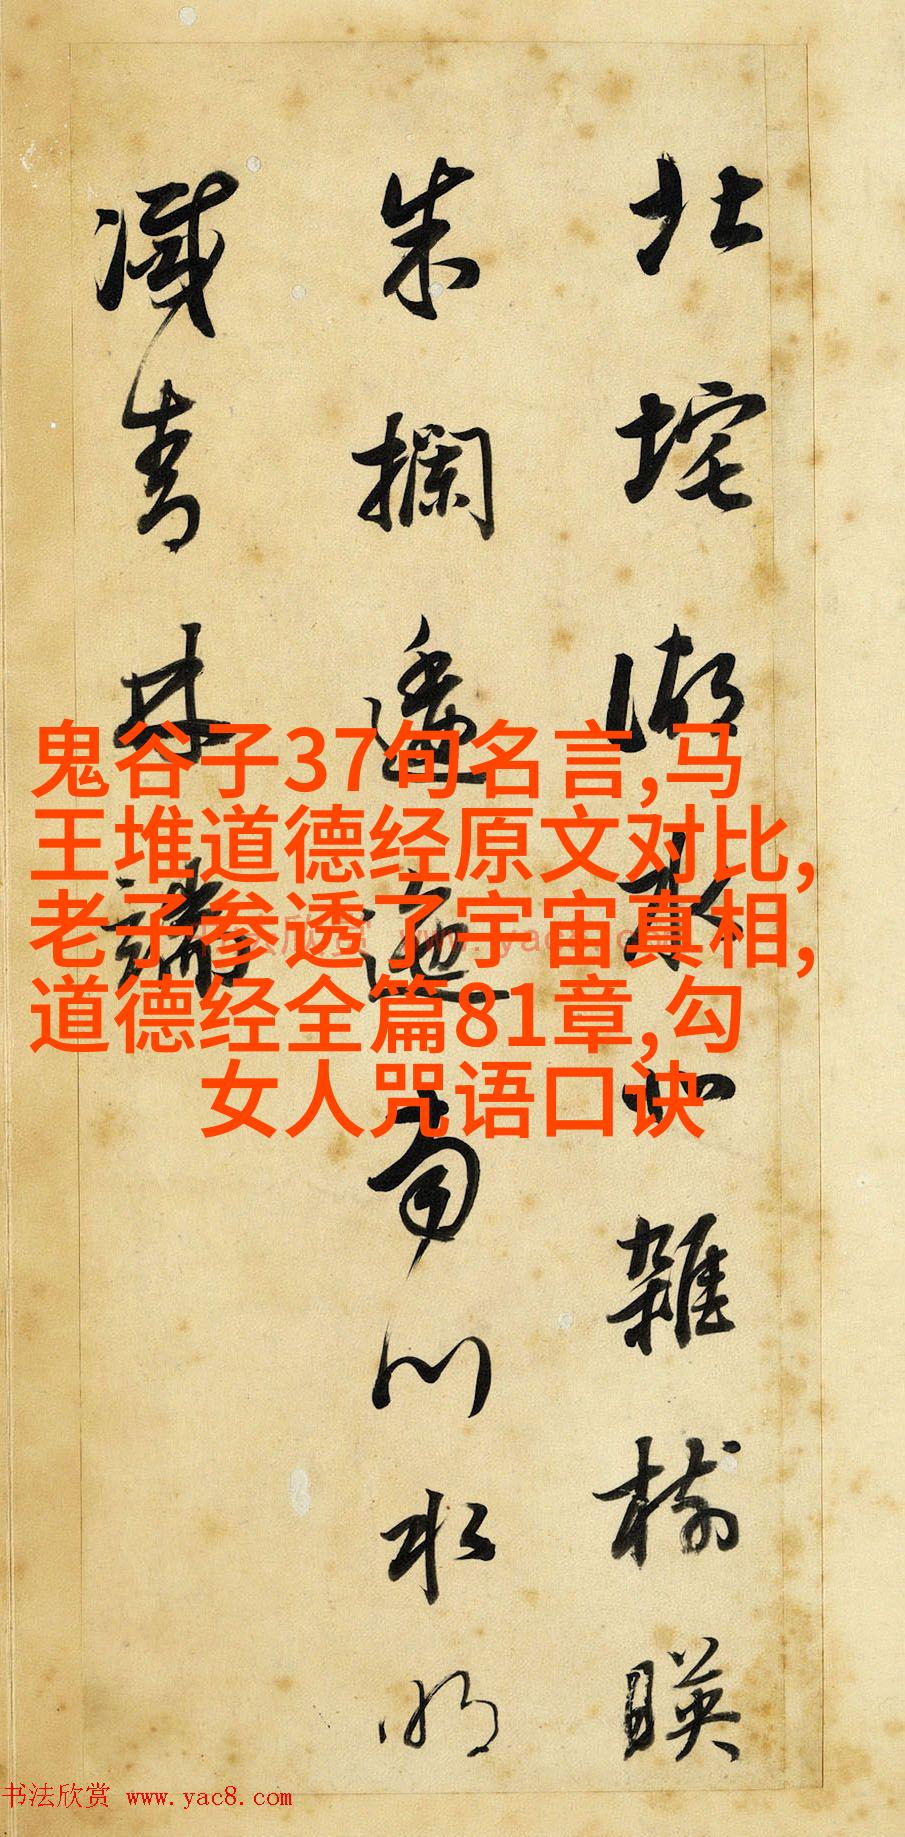 北垞湖水北雜樹暎
朱欄逶迤南川水明
滅青林端
鬼谷子37句名言,马
王堆道德经原文对比,
老子参透了宇宙真相,
道德经全篇81章,勾
女人咒语口诀
书法欣赏 www.yac8.com